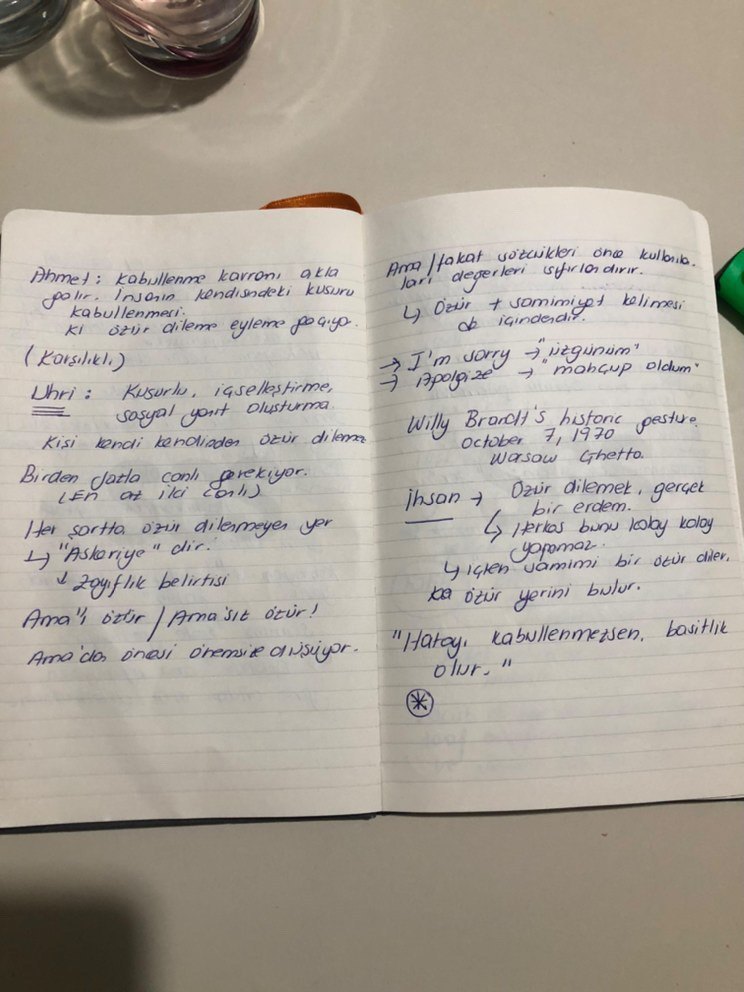 Ahmet: Kabullenme kavramı akla
gelir. İnsanın kendisindeki kusuru
kabullenmesi.
ki özür dileme eyleme geçiyor.
(Karşılıklı)
Uhri: Kusurlu, içselleştirme,
sosyal yanıt oluşturma
Kişi kendi kendinden özür dilemez
Birden fazla canlı gerekiyor.
(En az iki canlı)
Her şartta özür dilenmeyen yer
↳ "Askeriye" dir.
↓ zayıflık belirtisi
Ama'lı özür / Ama'sız özür!
Ama'dan öncesi önemsizle
Ama/fakat sözcükleri önce kullanıla.
ları değerleri sıfırlandırır.
↳ Özür + samimiyet kelimesi
de içindendir.
→ I'm sorry → "üzgünüm"
→ Apolgize → "mahçup oldum"
Willy Brandt's historic gesture.
October 7, 1970
Warsaw Ghetto.
İhsan → Özür dilemek, gerçek
bir erdem.
↳ Herkes bunu kolay kolay
yapamaz.
↳ içten samimi bir özür diler,
özür yerini bulur.
"Hatayı kabullenmezsen, basitlik
olur."